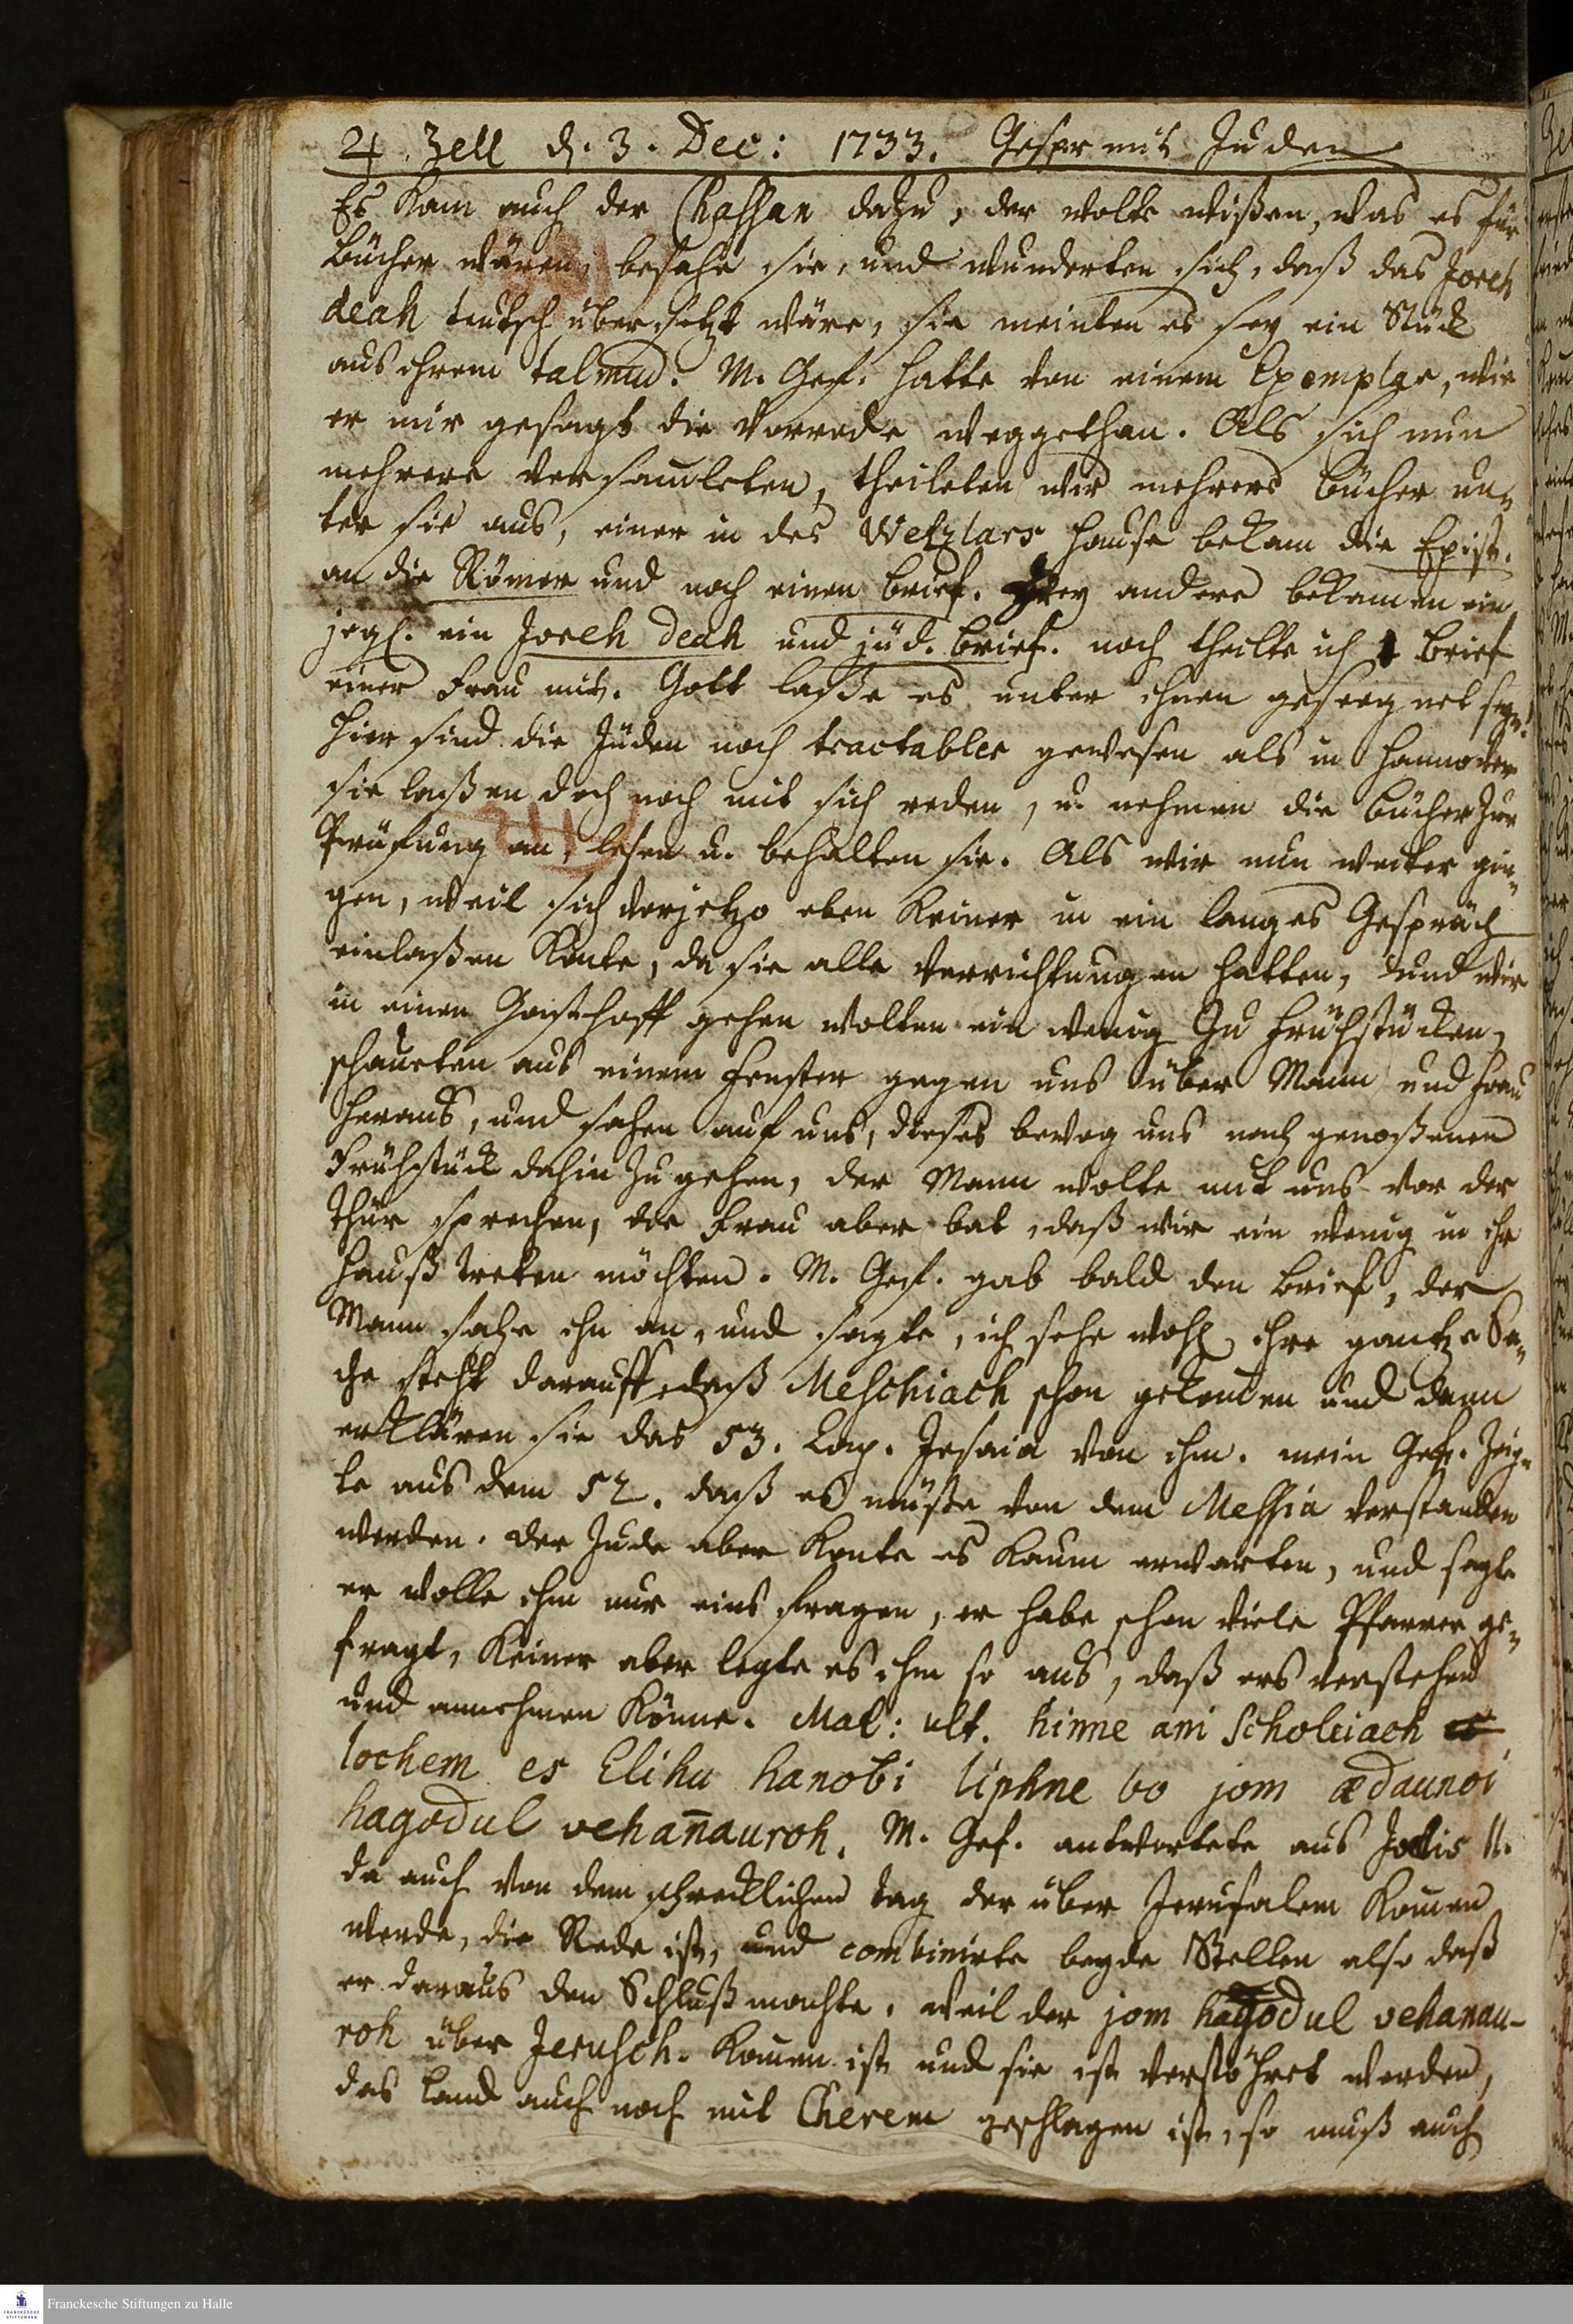 ♃. Zell d. 3. Dec: 1733. Gespr mit Juden
Es kam auch der Chassan dazu, der wolte wißen, was es für
Bücher wären, besahe sie, und wunderten sich, daß das Joreh
deah teutsch übersetzt wäre, sie meinten es sey ein Stück
aus ihrem talmud. M. Gef. hatte von einem Exemplar, wie
er mir gesagt die Vorrede weggethan. Als sich nun
mehrere versam̄leten, theileten wir mehrere Bücher un„
ter sie aus, einer in des Wetzlars Hause bekam die Epist.
an die Römer und noch einen Brief. Drey andere bekamen ein
jegl. ein Joreh deah und jüd. Brief. noch theilte ich 1 Brief
einer Frau mit. Gott laße es unter ihnen geseegnet seyn!
Hier sind die Jüden noch tractabler gewesen als in Hannover
sie laßen doch noch mit sich reden, u. nehmen die Bücher zur
Prüfung an, lesen u. behalten sie. Als wir nun weiter gin„
gen, weil sich vorjetzo eben keiner in ein langes Gespräch
einlaßen konte, da sie alle Verrichtungen hatten, und wir
in einen Gasthoff gehen wolten ein wenig zu frühstücken,
schaueten aus einem Fenster gegen uns über Mann und Frau
heraus, und sahen auf uns, dieses bewog uns nach genoßenen
Frühstück dahin zu gehen, der Mann wolte mit uns vor der
Thür sprechen, die Frau aber bat, daß wir ein wenig in ihr
Hauß treten möchten. M. Gef. gab bald den Brief, der
Mann sahe ihn an, und sagte, ich sehe wohl, ihre gantze Sa„
che steht darauff, daß Meschiach schon gekom̄en und dann
erklären sie das 53. Cap. Jesaia von ihm. mein Gef. zeig„
te aus dem 52. daß es müste von dem Messia verstanden
werden. Der Jude aber konte es kaum erwarten, und sagte
er wolle ihm nur eins fragen, er habe schon viele Pfarrer ge„
fragt, keiner aber legte es ihm so aus, daß ers verstehen
und annehmen könne. Mal: ult. hinne ani Scholeiach
lochem es Elihu hanobi liphne bo jom ædaunoi
hagodul vehan̄auroh. M. Gef. antwortete aus Joelis II.
da auch von dem schrecklichen Tag der über Jerusalem kom̄en
werde, die Rede ist, und combinirte beyde Stellen also daß
er daraus den Schluß machte, weil der jom hagodul vehanau-
roh über Jerusch. kom̄en ist und sie ist verstöhret worden,
das Land auch noch mit Cherem geschlagen ist, so muß auch
Franckesche Stiftungen zu Halle